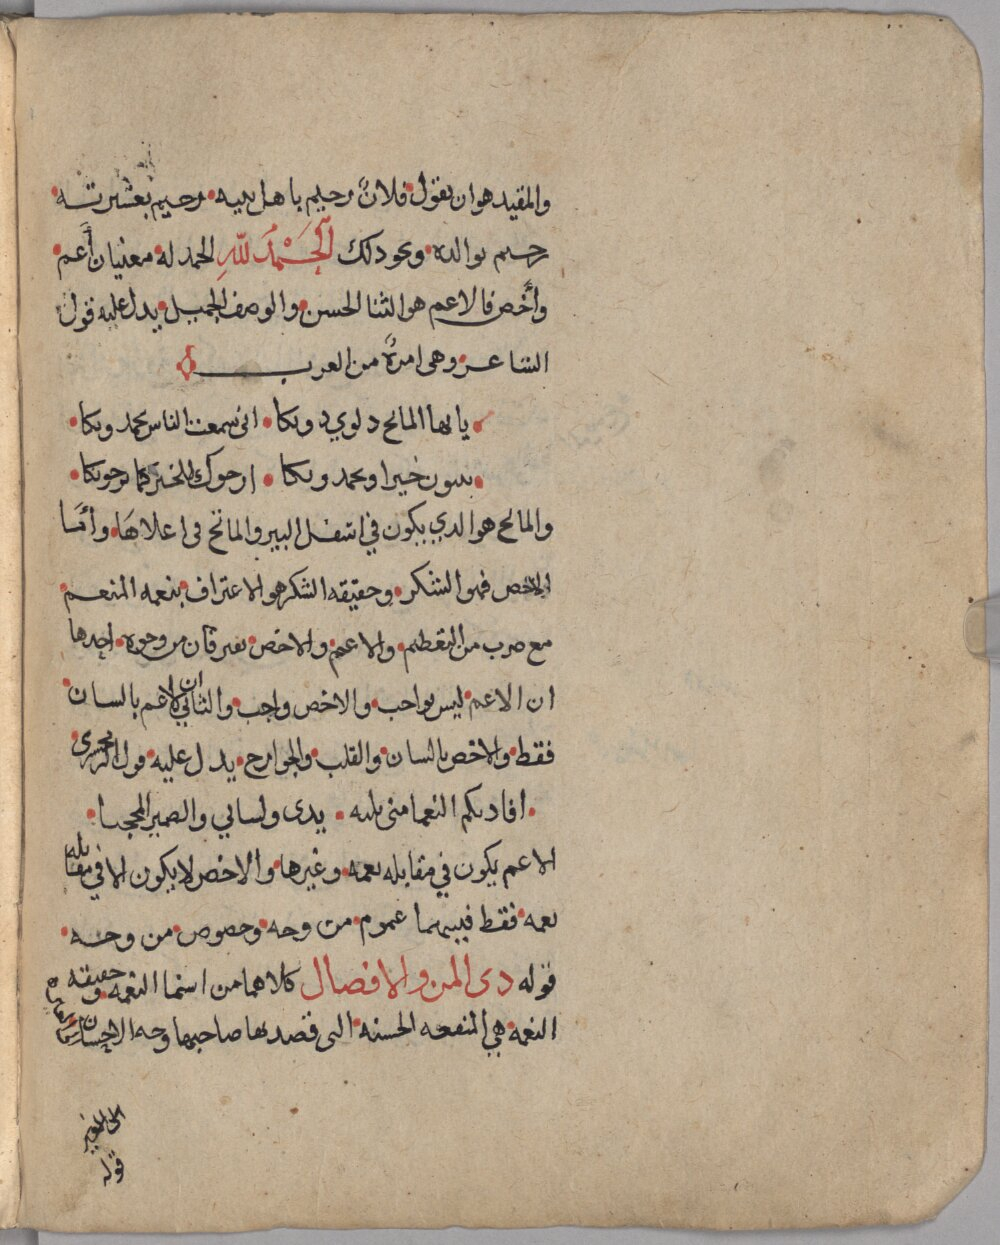 والمقيد هو ان يقول فلانٌ رحيم باهل بيته رحيم بعشيرته
رحيم بوالده ونحو ذلك اَلْحَمْدُ للهِ الحمد له معنيان أعم
وأخص فالاعم هو الثنا الحسن والوصف الجميل يدل عليه قول
الشاعر وهي امرةٌ من العرب
يا ايها المائح دلوي دونكا اني سمعت الناس يحمدونكا
يثنون خيرا ويحمدونكا ارجوك للخير كما يرجونكا
والمائح هو الذي يكون في اسفل البير والماتح في اعلاهَا وأمَّا
الاخص فهو الشكر وحقيقه الشكر هو الاعتراف بنعمه المنعم
مع ضرب من التعظيم والاعم والاخص يفترقان من وجوه احدها
ان الاعم ليس بواجب والاخص واجب والثاني ان الاعم باللسان
فقط والاخص باللسان والقلب والجوارح يدل عليه قول الزمخشري
افادتكم النعما مني ثلثه يدي ولساني والضمير المحجبا
الاعم يكون في مقابله نعمه وغيرها والاخص لا يكون الا في مقابله
نعمه فقط فبينهما عموم من وجه وخصوص من وجه
قوله ذي المن والافضال كلاهما من اسما النعمه وحقيقه
النعمة هي المنفعه الحسنه التي قصد بها صاحبها وجه الاحسان
الى الغير
قوله